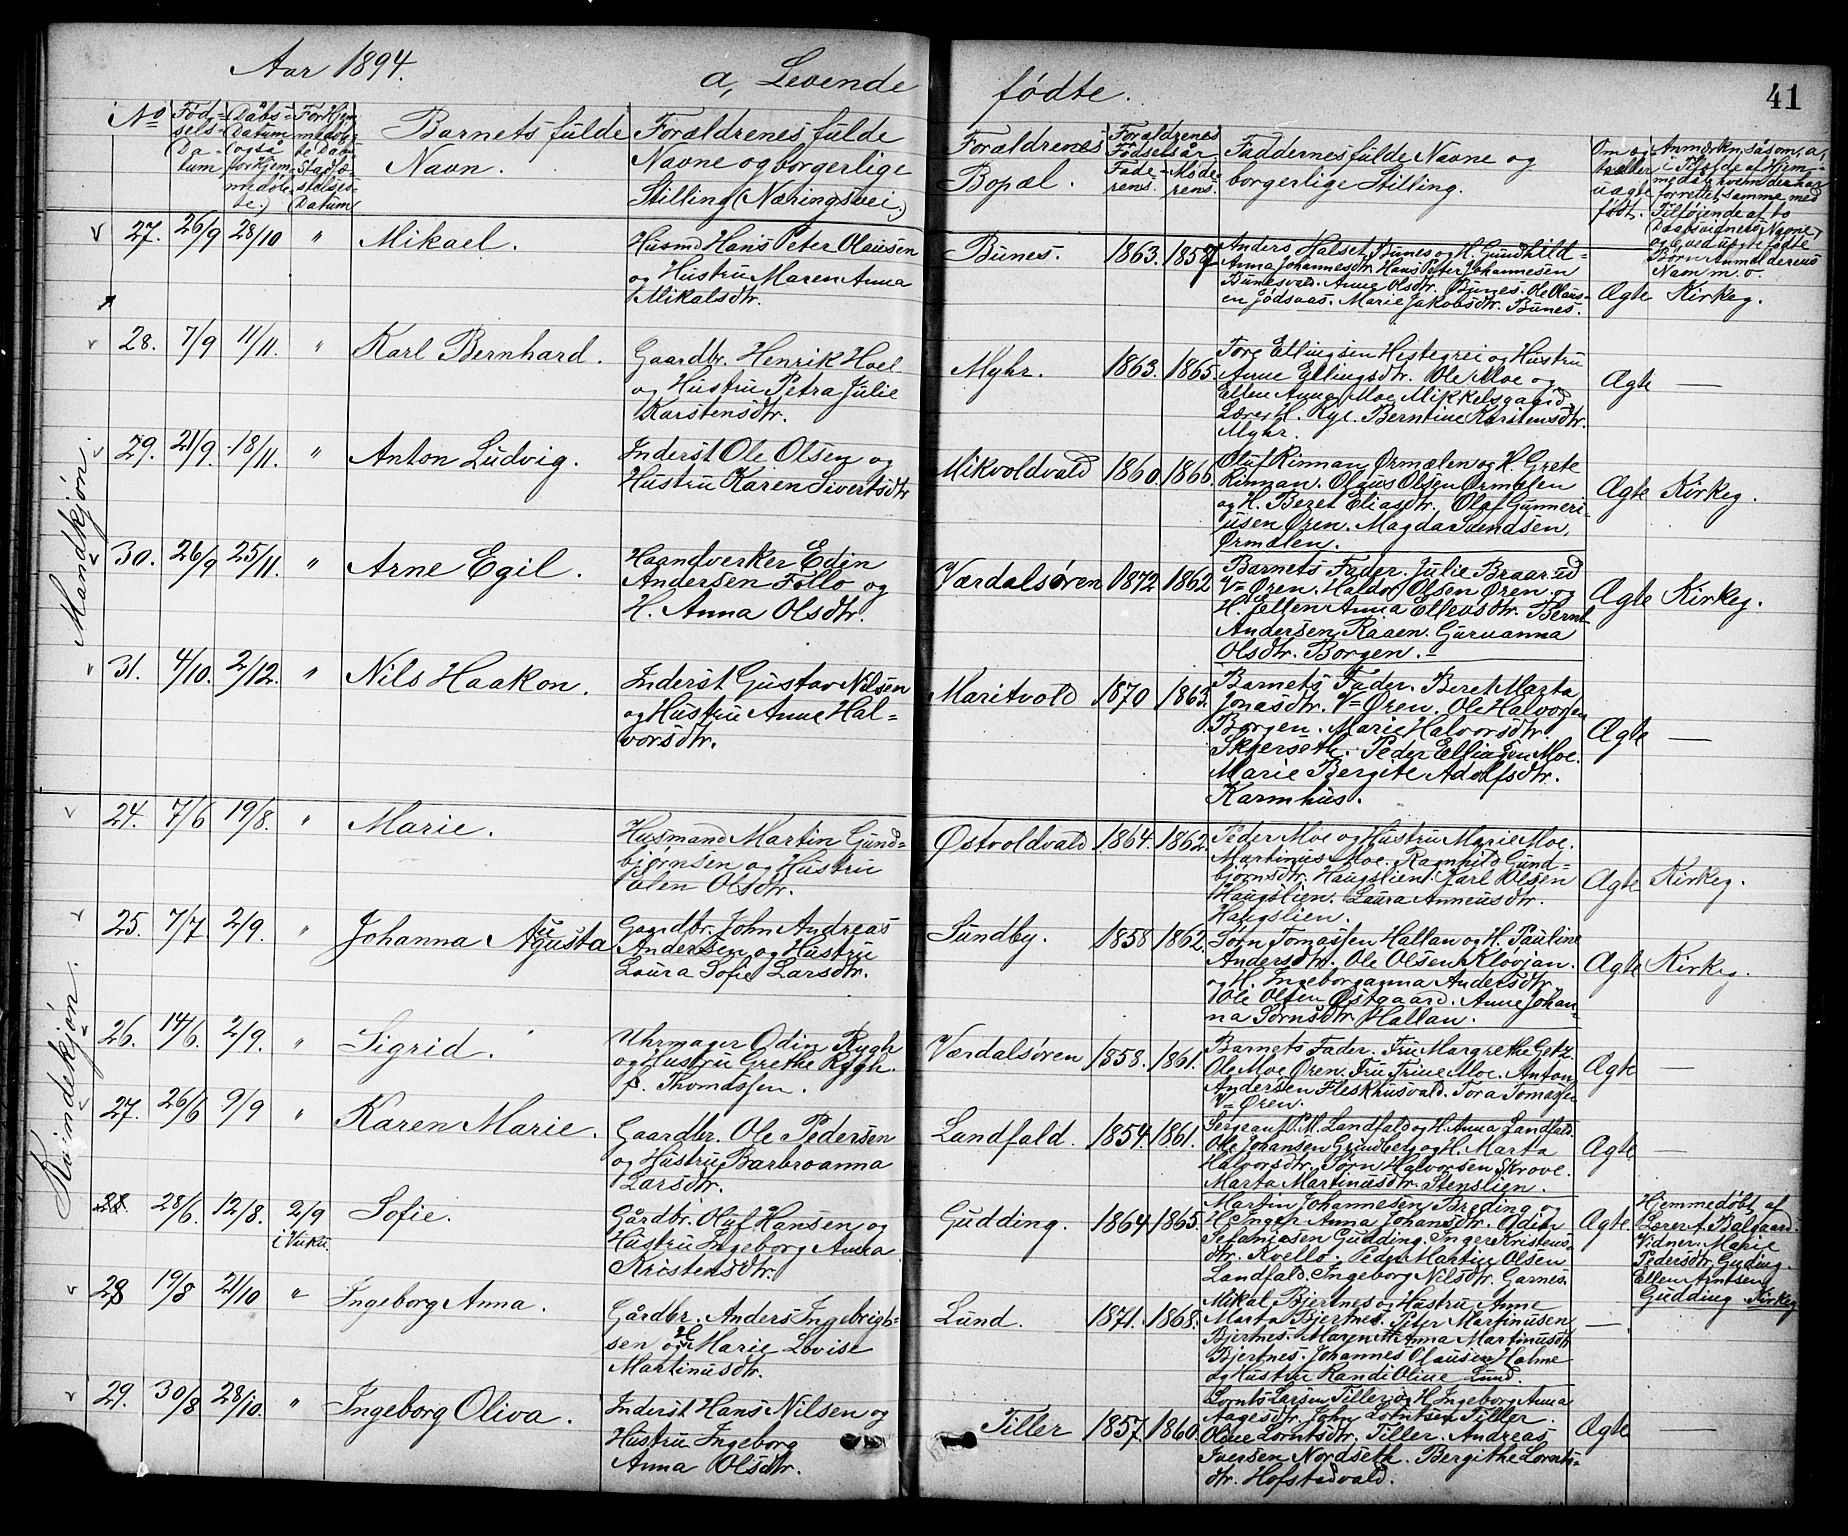 Aar 1894.
a, Levende
fødte.
41
No
Fød-
sels-
Da-
tum
Dåbs-
Datum
også
for Hjem-
medøb-
te.)
For Hjem-
medøb-
te Dåbs
Stadfæ-
stelses-
Datum
Barnets fulde
Navn.
Forældrenes fulde
Navne og borgerlige
Stilling (Næringsvei.)
Forældrenes
Bopæl.
Forældrenes
Fødselsår
Fade-
rens.
Mode-
rens.
Faddernes fulde Navne og
borgerlige Stilling.
Om ægte
eller
uægte
født.
Anmærkn., såsom, a,
i Tilfælde af Hjem-
medåb, hvem der har
forrettet samme med
Tilføjende af to
Dåbsvidners Navne,
og ved uægte fødte
Børn Anmelderens
Navn m. v.
Mandkjøn.
27. 26/9 28/10 " Mikael.
Husmd Hans Peter Olausen
og Hustru Maren Anna
Mikalsdtr.
Bunes. 1863. 1857
Anders Halset, Bunes og H. Gundhild-
Anna Johannesdtr. Hans Peter Johannesen
Bunesvald. Anne Olsdtr. Bunes. Ole Olaus-
en Jødsaas. Marie Jakobsdtr. Bunes.
Ægte Kirkeg.
28. 7/9 11/11. " Karl Bernhard.
Gaardbr. Henrik Hoel
og Hustru Petra Julie
Karstensdtr.
Myhr. 1863. 1865.
Tore Ellingsen Hestegrei og Hustru
Anne Ellingsdtr. Ole Moe og
Ellen Anna Moe Mikkelsgaard,
Lærer H. Rye. Berntine Karstensdtr.
Myhr.
Ægte —
29. 21/9. 18/11. " Anton Ludvig.
Inderst Ole Olsen og
Hustru Karen Sivertsdtr
Mikvoldvald 1860. 1866.
Oluf Rinnan Ørmælen og H. Grete
Rinnan. Olaus Olsen Ørmelen
og H. Beret Eliasdtr. Olaf Gunneri-
usen Øren. Magda Svendsen,
Ørmælen.
Ægte Kirkeg.
30. 26/9 25/11. " Arne Egil.
Haandverker Edin
Andersen Follo og
H. Anna Olsdtr.
Værdalsøren 1872 1862
Barnets Fader. Julie Braarud
V= Øren. Haldor Olsen Øren og
H. Ellen Anna Ellevsdtr. Bernt
Andersen Raaen. Guruanna
Olsdtr. Borgen.
Ægte Kirkeg.
31. 4/10. 2/12. " Nils Haakon.
Inderst Gustav Nilsen
og Hustru Anne Hal-
vorsdtr.
Maritvold 1870 1863.
Barnets Fader. Beret Marta
Jonasdtr. V= Øren. Ole Halvorsen
Borgen. Marie Halvorsdtr.
Skjerseth. Peder Eliassen Moe.
Marie Bergete Adolfsdtr.
Karmhus.
Ægte —
Kvindekjøn.
24. 7/6 19/8. " Marie.
Husmand Martin Gund-
bjørnsen og Hustru
Olen Olsdtr.
Østvoldvald 1864. 1862.
Peder Moe og Hustru Marie Moe.
Martinus Moe. Ragnhild Gund-
bjørnsdtr. Haugslien. Karl Olsen
Haugslien. Laura Anneusdtr.
Haugslien.
Ægte Kirkeg.
25. 7/7 2/9. " Johanna Augusta
Gaardbr. John Andreas
Andersen og Hustru
Laura Sofie Larsdtr.
Sundby. 1858 1862.
Sørn Tomassen Hallan og H. Pauline
Andersdtr. Ole Olsen Kløvjan.
og H. Ingeborganna Andersdtr.
Ole Olsen Østgaard. Anne Johan-
na Sørnsdtr. Hallan.
Ægte Kirkeg.
26. 14/6. 2/9. " Sigrid.
Uhrmager Odin Rygh
og Hustru Grethe Rygh.
f. Thomassen.
Værdalsøren 1858. 1861.
Barnets Fader. Fru Margrethe Getz.
Ole Moe Øren. Fru Trine Moe. Anton
Andersen Fleskhusvald. Tora Tomassen
V= Øren.
Ægte —
27. 26/6 9/9 " Karen Marie.
Gaardbr. Ole Pedersen
og Hustru Barbroanna
Larsdtr.
Landfald. 1854. 1861.
Sergeant P. M. Landfald og H. Anna Landfald.
Ole Johansen Grundberg og H. Marta
Halvorsdtr. Sørn Halvorsen Skrove.
Marta Martinusdtr. Stenslien.
Ægte —
28. 28/6. 12/8. 2/9 Sofie.
i Vuku.
Gårdbr. Oluf Hansen og
Hustru Ingeborg Anna
Kristensdtr.
Gudding. 1864 1865.
Martin Johannesen Breding og
H. Inger Anna Johansdtr. Odin
Stefaniasen Gudding. Inger Kristens-
dtr. Kvello. Peder Martin Olsen
Landfald. Ingeborg Nilsdtr. Garnes.
Ægte
Hjemmedøbt af
Lærer A. Balgaard.
Vidner. Marie
Pedersdtr. Guding.
Ellen Arntsen
Gudding Kirkeg
28 19/8 21/10 " Ingeborg Anna.
Gårdbr. Anders Ingebrigt-
sen og Marie Lovise
Martinusdtr.
Lund. 1871. 1868.
Mikal Bjertnes og Hustru Anne
Marta Bjertnes. Peter Martinusen
Bjertnes. Maren Anna Martinusdtr
Bjertnes. Johannes Olausen Holme
og Hustru Randi Oline Lund.
—
29. 30/8 28/10. " Ingeborg Oliva.
Inderst Hans Nilsen og
Hustru Ingeborg
Anna Olsdtr.
Tiller 1857. 1860
Lornts Larsen Tiller og H. Ingeborg Anna
Aagesdtr. John Lorntsen Tiller.
Oline Lorntsdtr. Tiller. Andreas
Iversen Nordseth. Bergithe Lornts-
dtr. Hofstadvald.
Ægte —